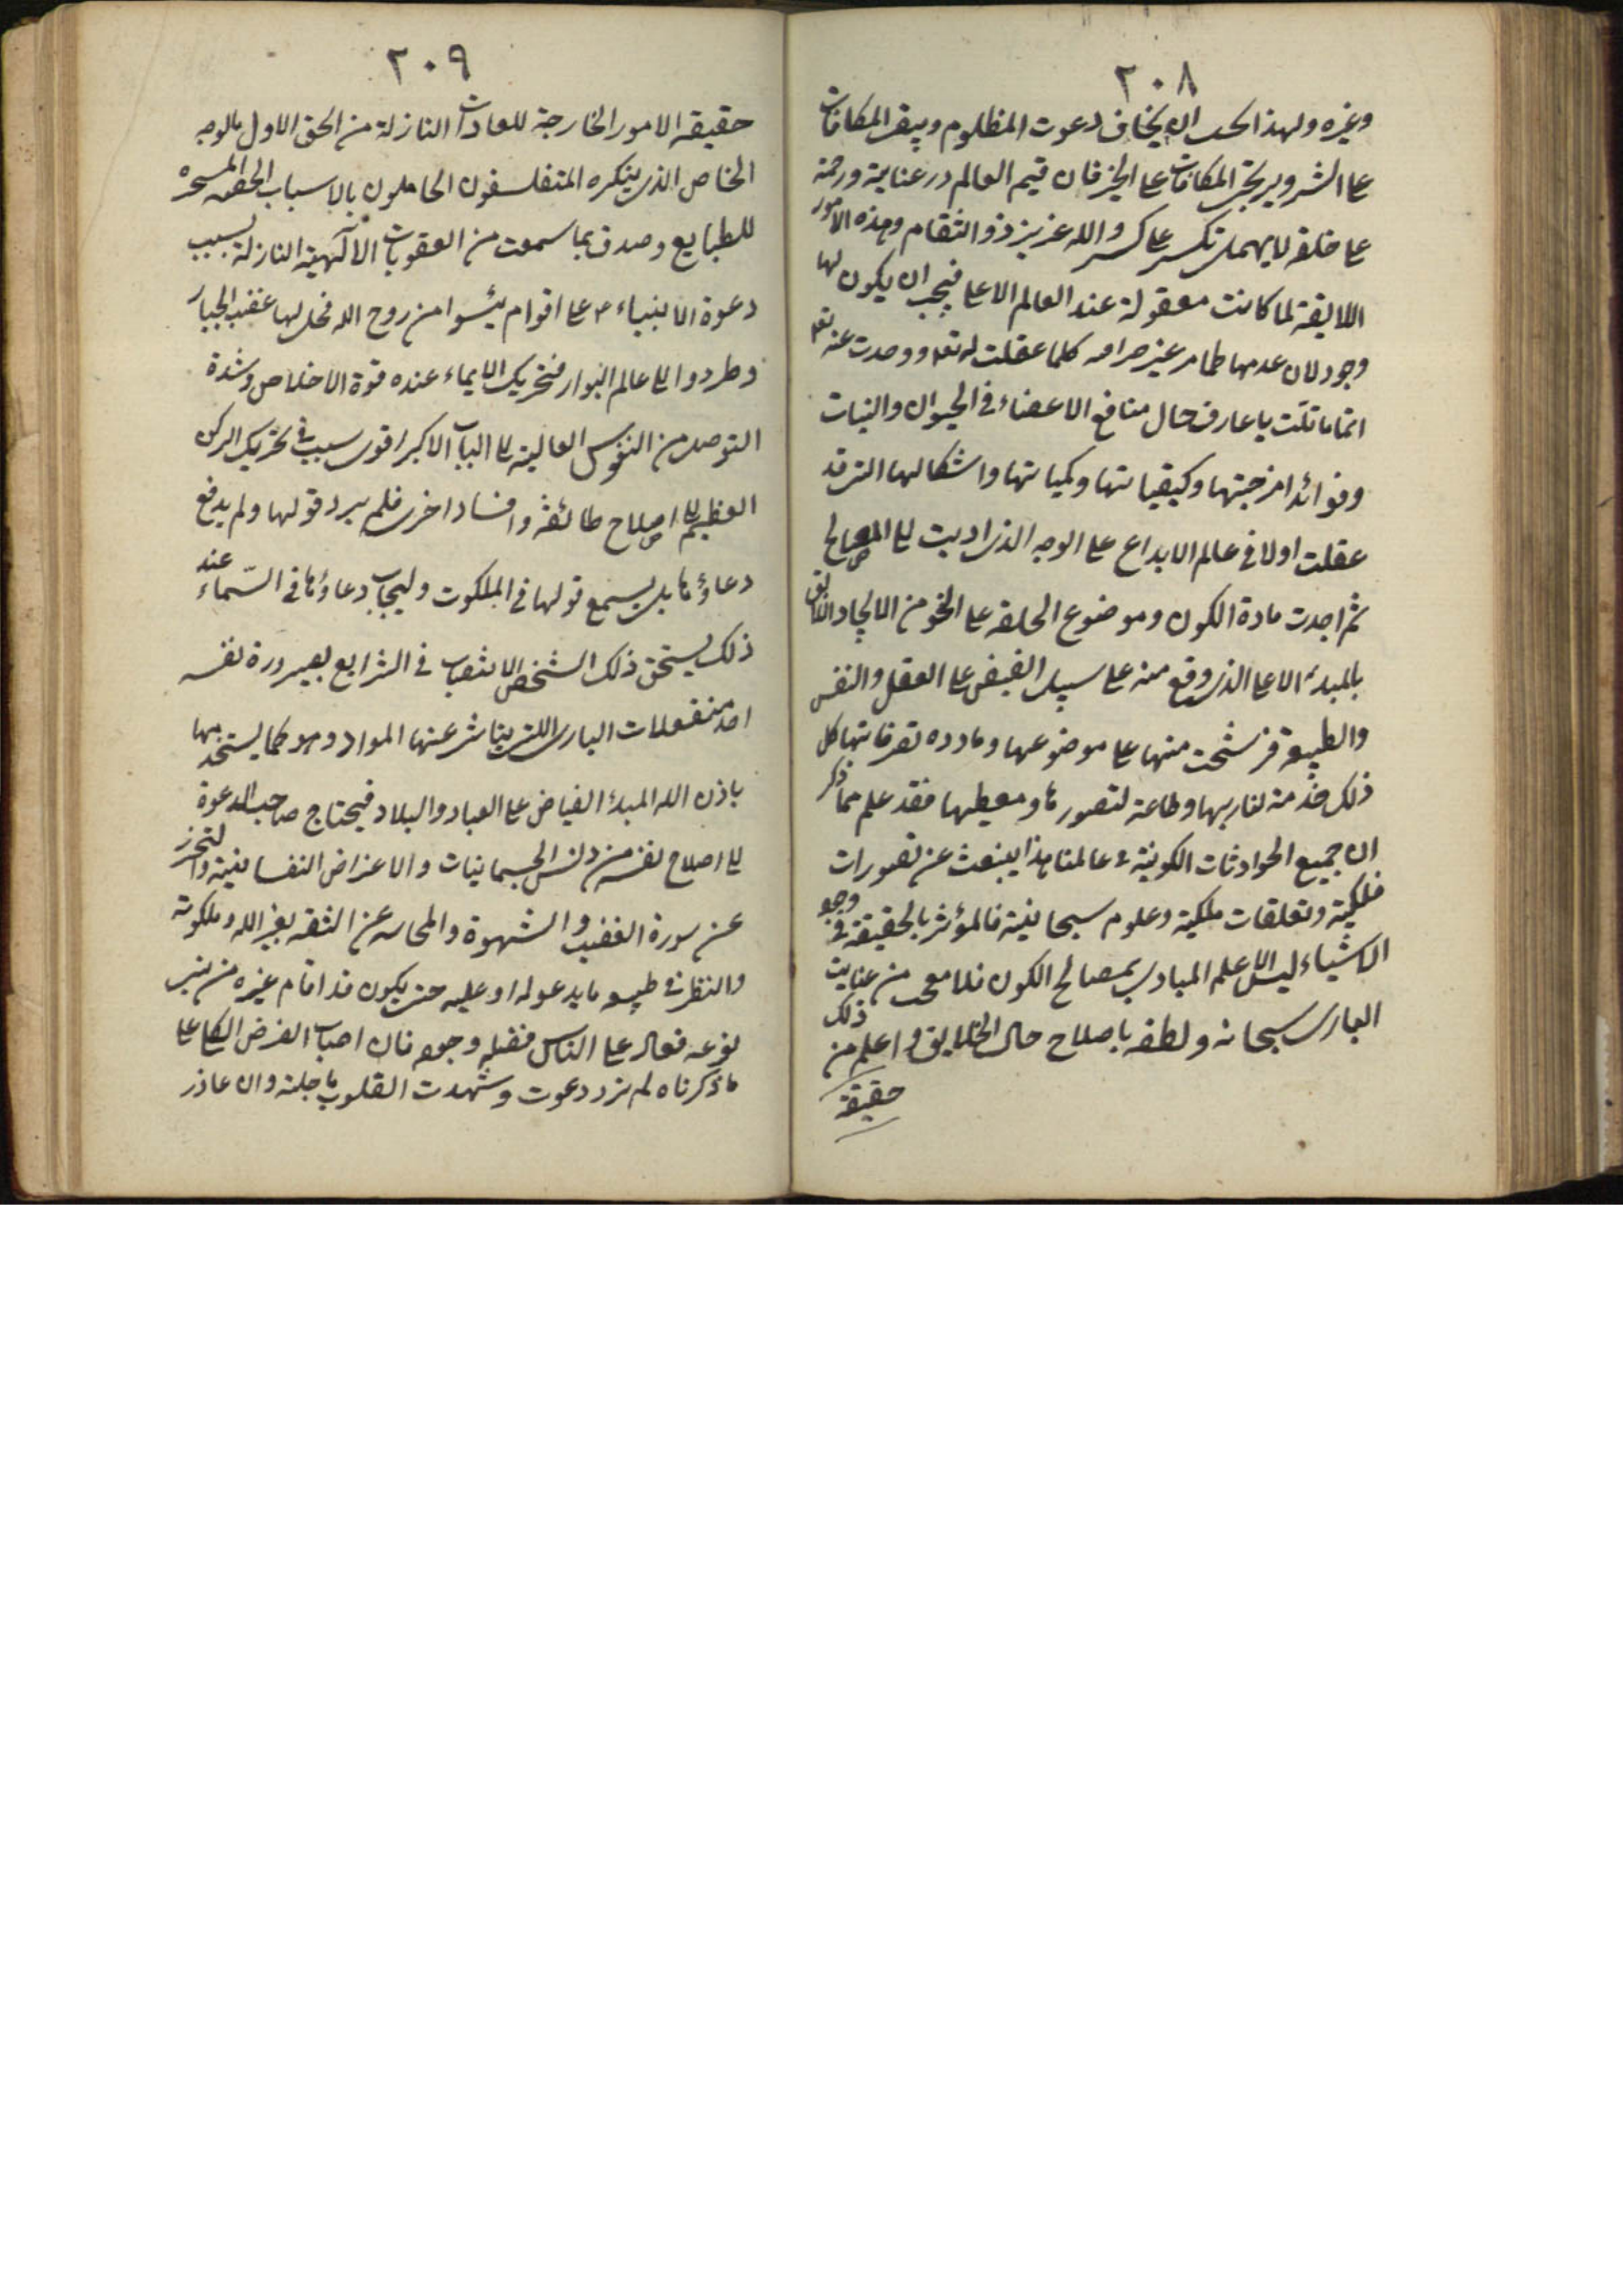 ٢٠٨
وغيره ولهذا يجب ان يخاف دعوت المظلوم ويتيقن المكافات
على الشر ويرتجى المكافات على الخير فان قيم العالم در عناية ورحمة
على خلقه لا يهمل والله عزيز ذو انتقام وهذه الامور
اللايقة لما كانت معقولة عند العالم الاعلى فيجب ان يكون لها
وجود لان عدمها غير كلما عقلت له تعه ووجدت عنه تعه
يا عارف حال منافع الاعضاء في الحيوان والنبات
وفوائد امزجتها وكيفياتها وكمياتها واشكالها التى قد
عقلت اولا في عالم الابداع على الوجه الذى اديت الى المصالح
ثم اجدت مادة الكون وموضوع على النحو من الايجاد اللايق
بالمبدء الاعلى الذى وقع منه على سبيل الفيض على العقل والنفس
والطبيعة فرشحت منها على موضوعها تصرفاتها كل
ذلك خدمة لباريها وطاعة لتصورها ومعطيها فقد علم مما ذكر
ان جميع الحوادثات الكونية في عالمنا هذا ينبعث عن تصورات
فلكية وتعلقات ملكية وعلوم سبحانية فالمؤثر بالحقيقة في وجود
الاشياء ليس الا علم المبادى بمصالح الكون من عنايت
البارى سبحانه ولطفه باصلاح حال الخلايق واعلم من ذلك
حقيقة
٢٠٩
حقيقة الامور الخارجة للعادات النازلة من الحق الاول بالوجه
الخاص الذى ينكره المتفلسفون بالاسباب
للطبايع وصدق بما سمعت من العقوبات الالهية النازلة بسبب
دعوة الانبياء ع على اقوام يئسوا من روح الله فحل لها غضب الجبار
وطردوا الى عالم البوار عنده قوة الاخلاص وشدة
من النفوس العالية الى الباب الاكبر اقوى سبب في تحريك الركن
العظيم الى اصلاح طائفة وافساد اخرى فلم يرد قولها ولم يدفع
دعاؤها بل يسمع قولها في الملكوت وليجاب دعاؤها في السماء عند
ذلك يستحق ذلك الشخص في الشرايع بصيرورة نفسه
احد منفعلات البارى التى عنها المواد وهو كما يستخدمها
باذن الله المبدء الفياض على العباد والبلاد فيحتاج صاحب الدعوة
الى اصلاح نفسه من دنس الجسمانيات والاعراض النفسانية والتحرز
عن سورة الغضب والشهوة عن الثقة بغير الله وملكوته
والنظر في ما يدعو له او عليه حتى يكون قد اقام غيره من بنى
نوعه على الناس فان اصاب الغرض على
ما ذكرناه لم ترد دعوت وشهدت القلوب